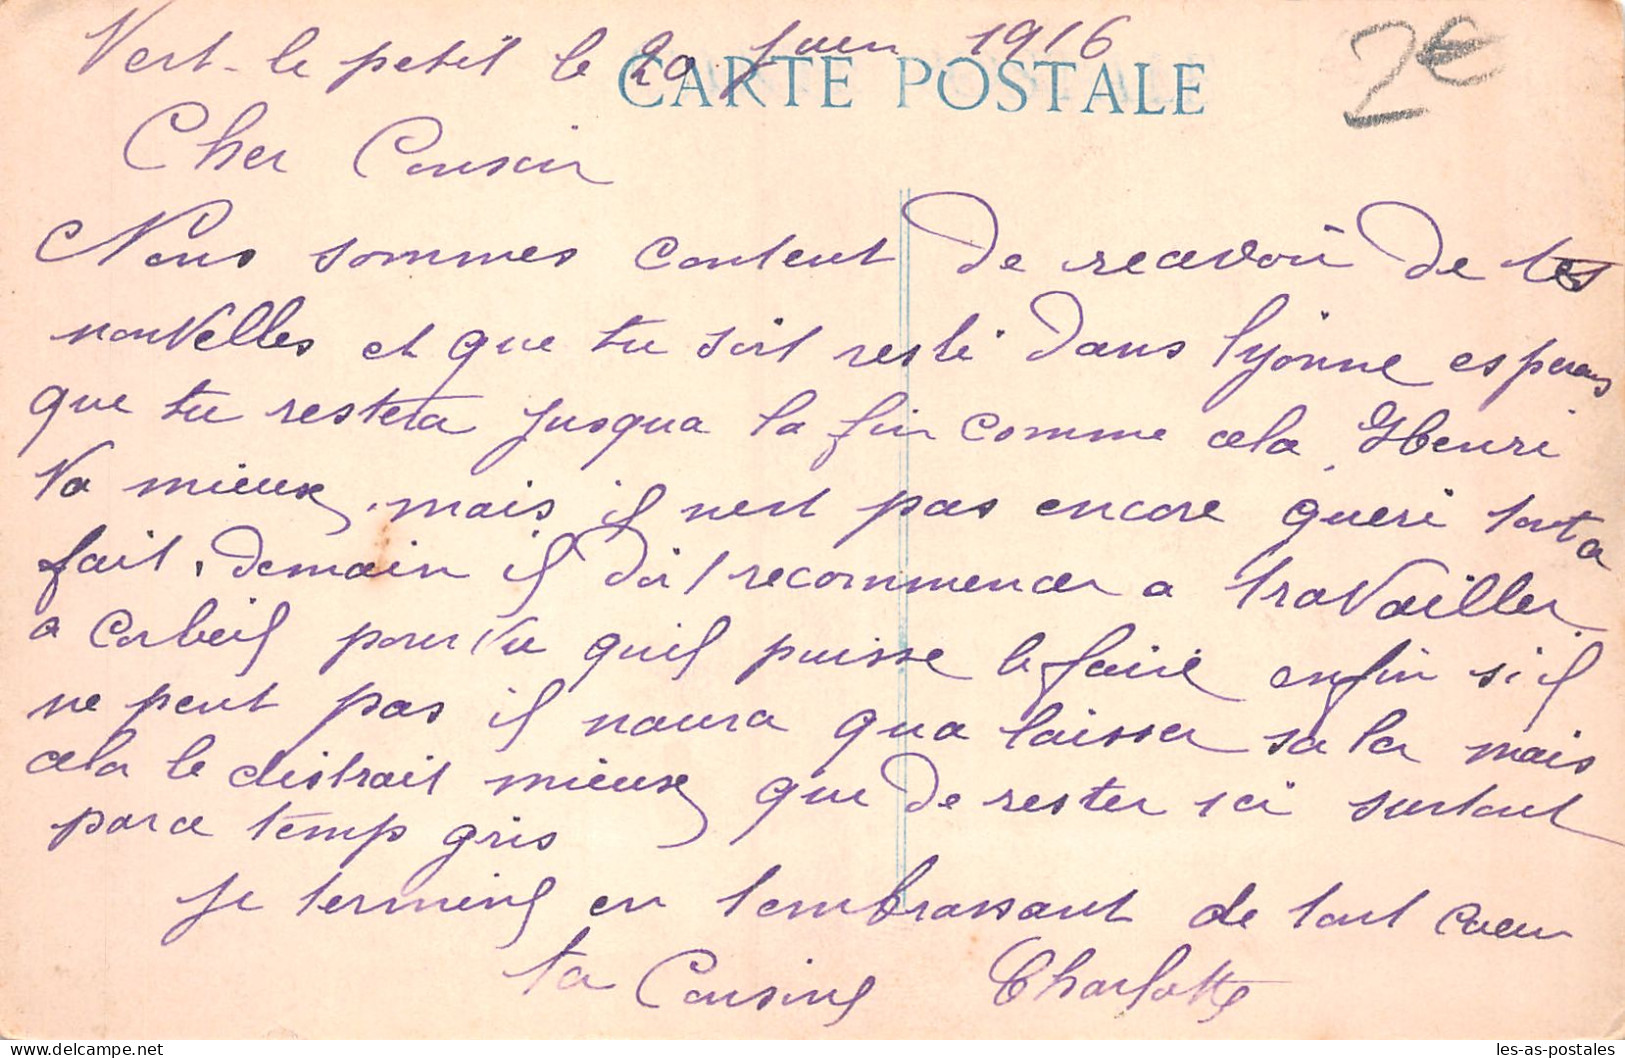 Vert-le petit le 20 juin 1916
CARTE POSTALE
2€
Cher Cousin
Nous sommes content de recevoir de tes
nouvelles et que tu soit resté dans lyonne esperons
que tu restera jusqua la fin comme cela Henri
va mieux, mais il nest pas encore gueri tout a
fait. demain il doit recommencer a travailler
a Corbeil pourvu quil puisse le faire enfin si il
ne peut pas il naura qua laisser sa la mais
cela le distrait mieux que de rester ici surtout
par ce temp gris
je termine en tembrassant de tout coeur
ta Cousine Charlotte
les-as-postales.com